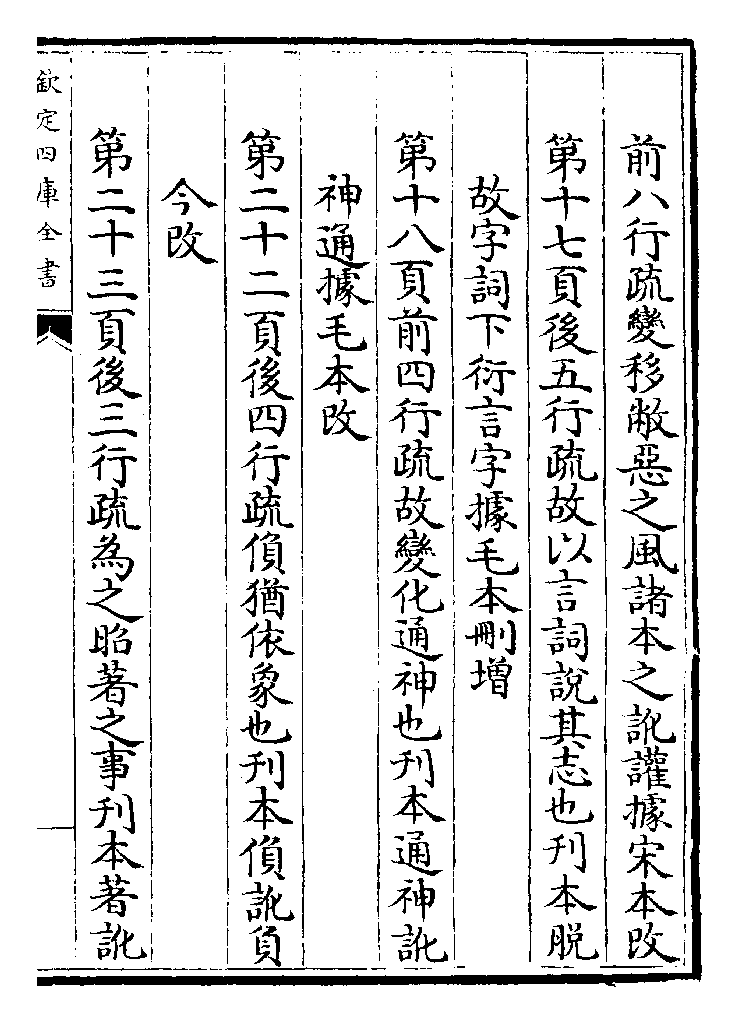 前八行疏變移敝惡之風諸本之訛讙據宋本改
第十七頁後五行疏故以言詞說其志也刊本脱
故字詞下衍言字據毛本刪增
第十八頁前四行疏故變化通神也刊本通神訛
神通據毛本改
第二十二頁後四行疏偩猶依象也刊本偩訛負
今改
第二十三頁後三行疏為之昭著之事刊本著訛
欽定四庫全書